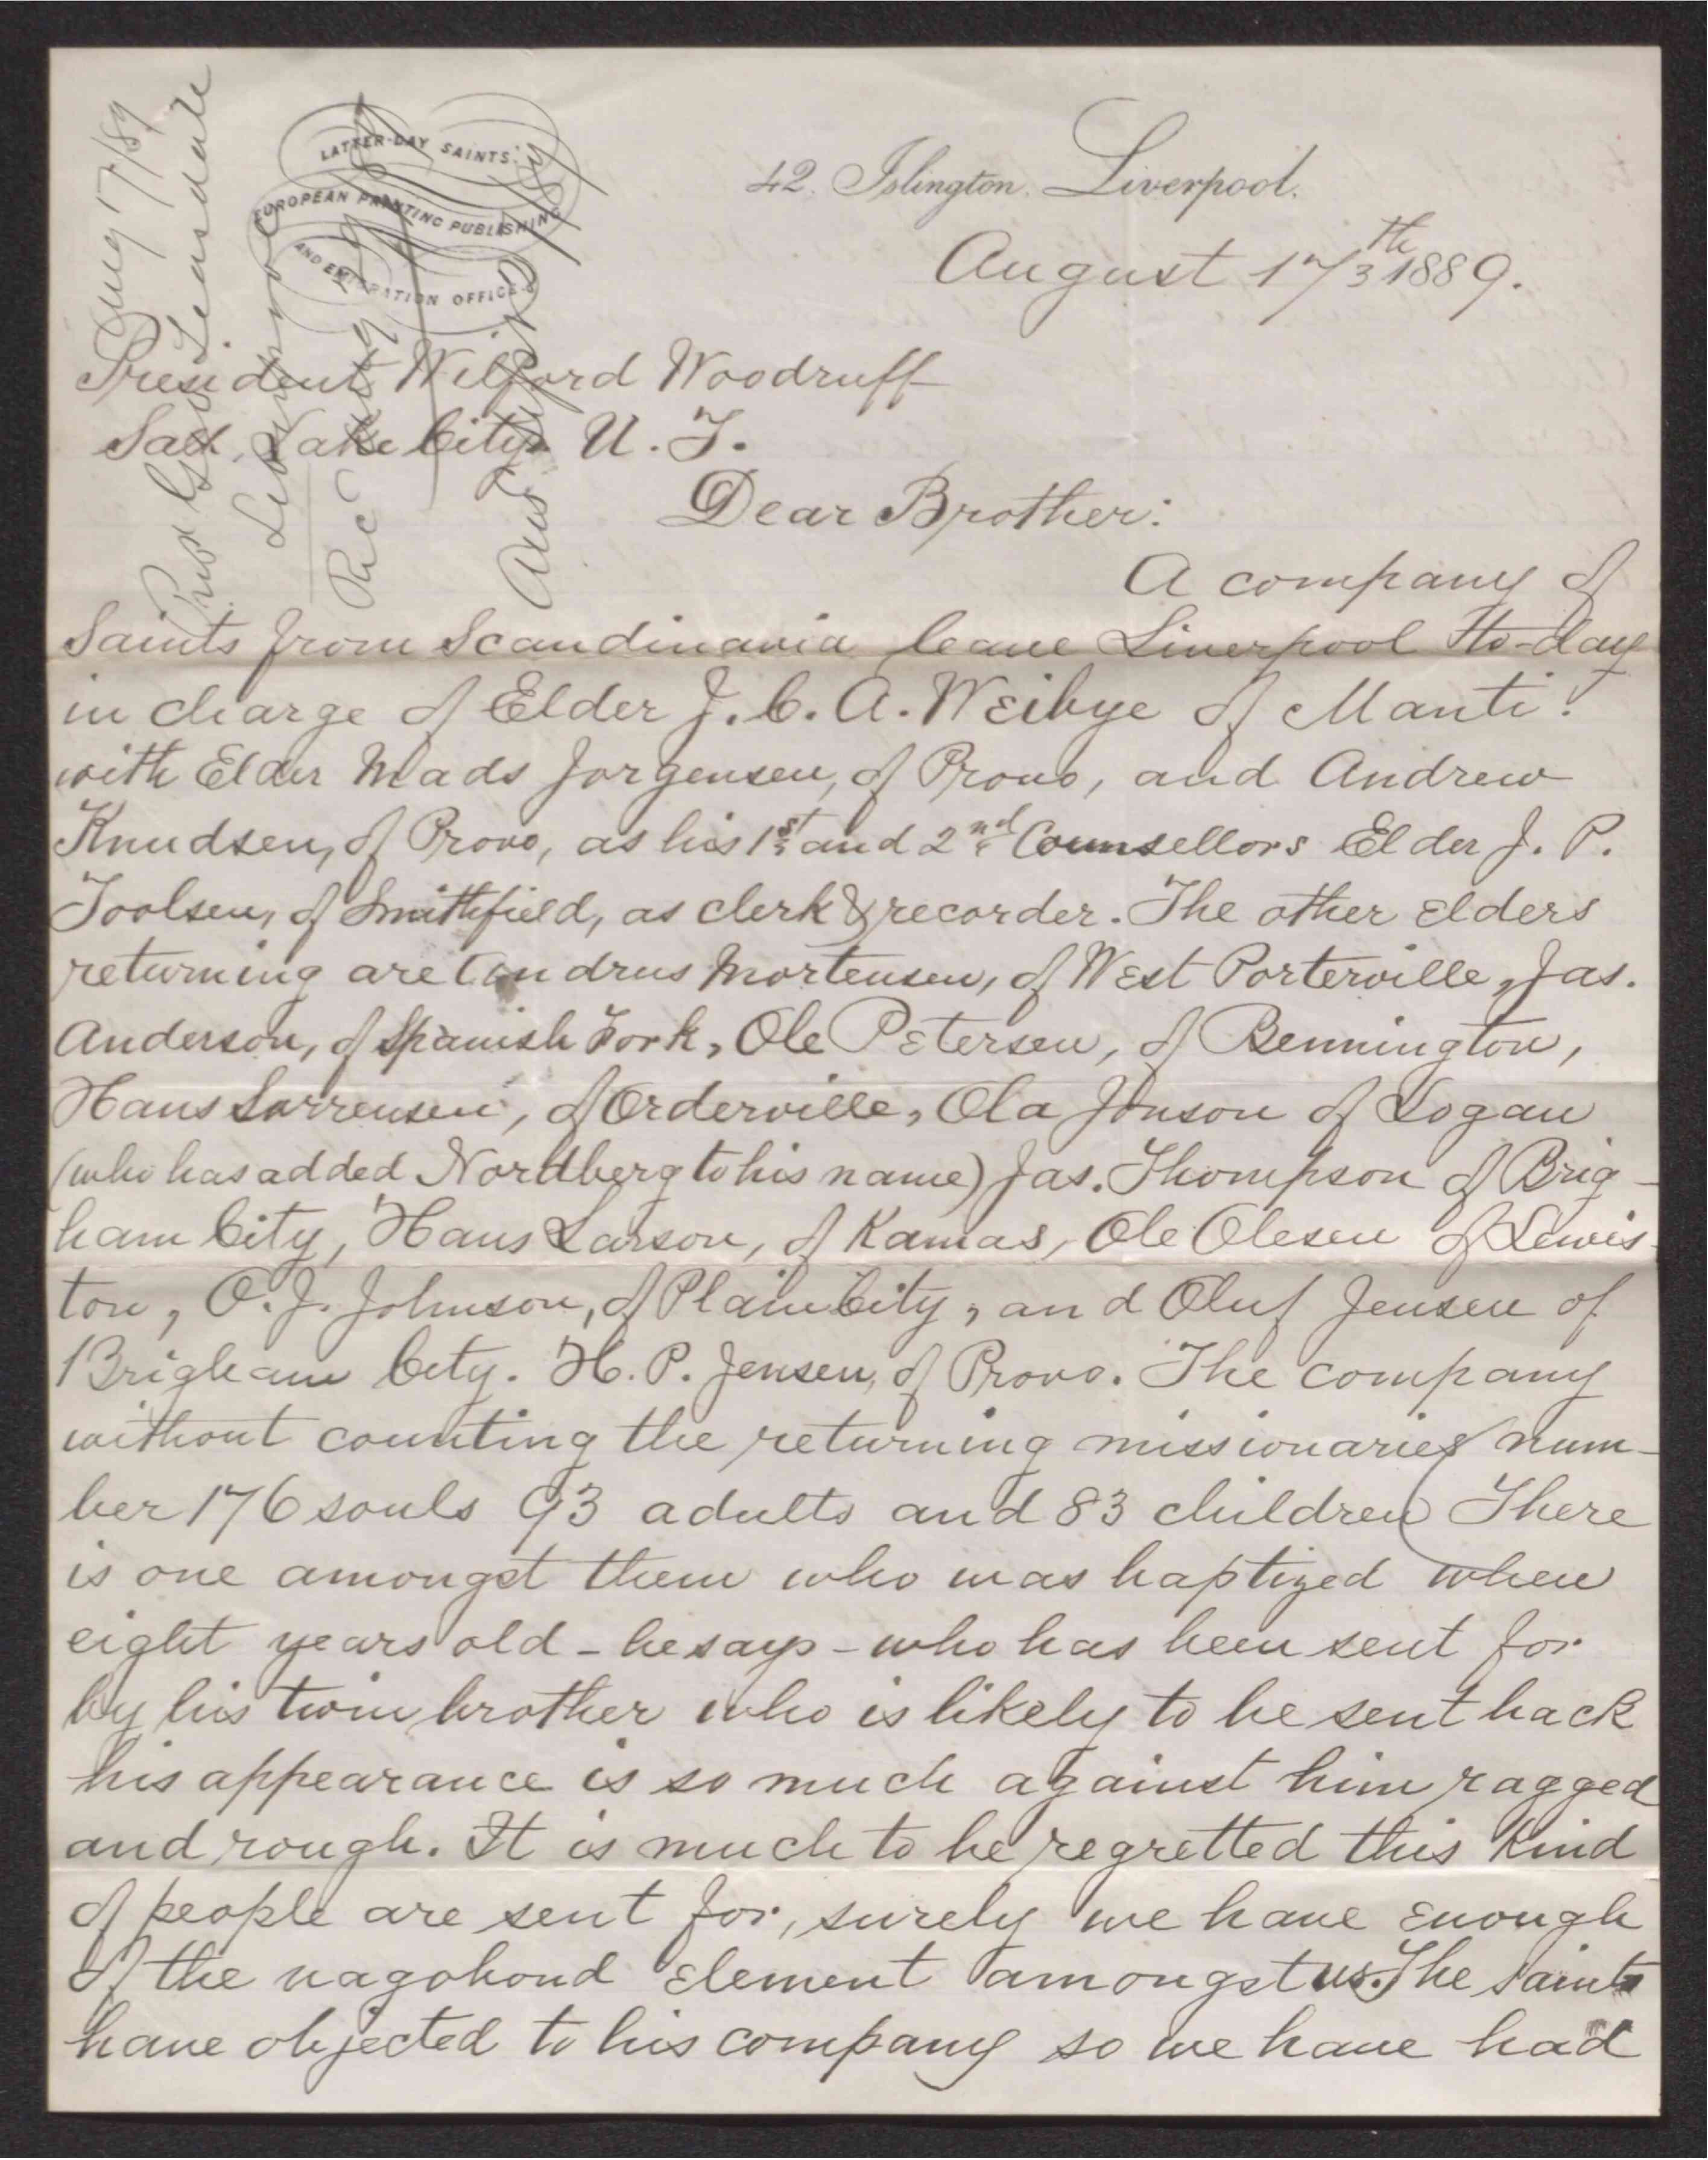 LATTER-DAY SAINTS'
EUROPEAN PRINTING PUBLISHING
AND EMIGRATION OFFICE
42. Islington. Liverpool.
August 17th 1889.
Aug 17/89
Pres Geo Teasdale
Liverpool
Rec
Ans
President Wilford Woodruff
Salt Lake City. U. T.
Dear Brother:
A company of
Saints from Scandinavia leave Liverpool to-day
in charge of Elder J. C. A. Weibye of Manti.
with Elder Mads Jorgensen, of Provo, and Andrew
Knudsen, of Provo, as his 1st and 2nd Counsellors Elder J. P.
Toolsen, of Smithfield, as clerk & recorder. The other elders
returning are Andrus Mortensen, of West Porterville, Jas.
Anderson, of Spanish Fork, Ole Petersen, of Bennington,
Hans Sorrensen, of Orderville, Ola Jonson of Logan
(who has added Nordberg to his name) Jas. Thompson of Brig-
ham City, Hans Larson, of Kamas, Ole Olesen of Lewis-
ton, O. J. Johnson, of Plain City, and Oluf Jensen of
Brigham City. H. P. Jensen, of Provo. The company
without counting the returning missionaries num-
ber 176 souls 93 adults and 83 children There
is one amongst them who was baptized when
eight years old - he says - who has been sent for
by his twin brother who is likely to be sent back
his appearance is so much against him ragged
and rough. It is much to be regretted this kind
of people are sent for, surely we have enough
of the vagobond element amongst us. The saints
have objected to his company so we have had